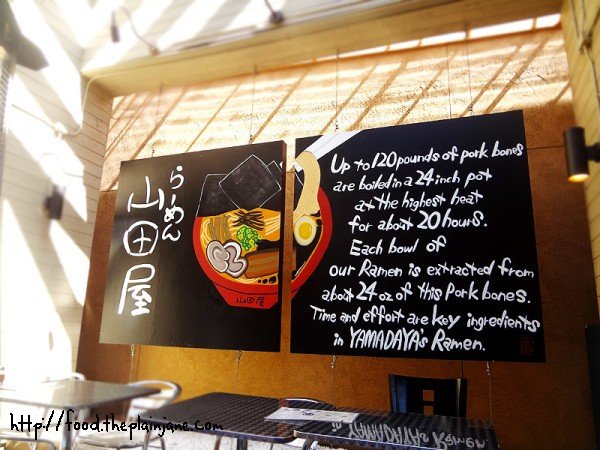 らーめん
山田屋
山田屋
Up to 120 pounds of pork bones
are boiled in a 24 inch pot
at the highest heat
for about 20 hours.
Each bowl of
our Ramen is extracted from
about 24 oz of this Pork bones.
Time and effort are key ingredients
in YAMADAYA's Ramen.
http://food.theplainjane.com